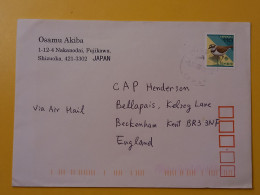 Osamu Akiba
1-12-4 Nakanodai, Fujikawa,
Shizuoka, 421-3302 JAPAN
CAP Henderson
Bellapais, Kelsey Lane
Via Air Mail
Beckenham Kent BR3 3NF
England